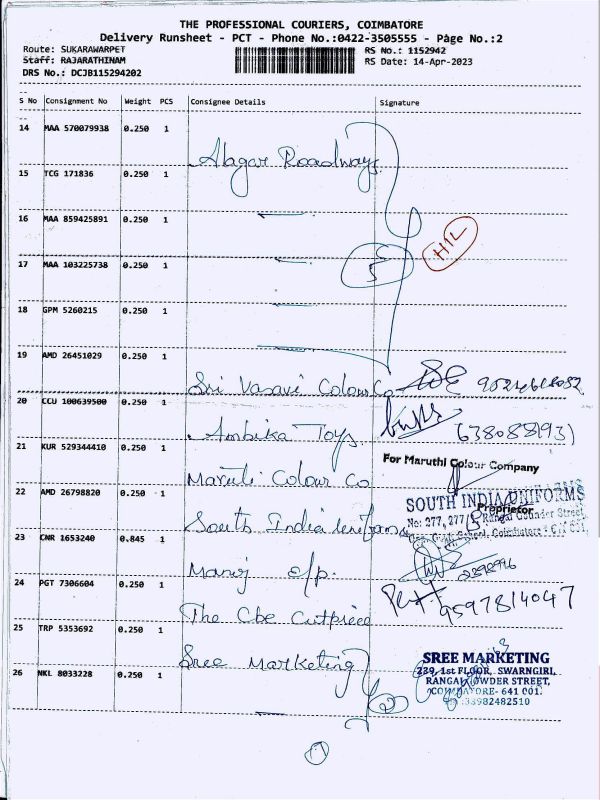 THE PROFESSIONAL COURIERS, COIMBATORE
Delivery Runsheet - PCT - Phone No.:0422-3505555 - Page No.:2
Route: SUKARAWARPET
RS No.: 1152942
Staff: RAJARATHINAM
RS Date: 14-Apr-2023
DRS No.: DCJB115294202
S No Consignment No Weight PCS Consignee Details Signature
14 MAA 570079938 0.250 1 Alagar Roadways
15 TCG 171836 0.250 1
16 MAA 859425891 0.250 1
HIL
17 MAA 103225738 0.250 1
5
18 GPM 5260215 0.250 1
19 AMD 26451029 0.250 1 Sri Vasavi Colour Co
20 CCU 100639500 0.250 1 Ambika Toys
6380881931
21 KUR 529344410 0.250 1 Maruti Colour Co
For Maruthi Colour Company
Proprietor
22 AMD 26798820 0.250 1 South India Uniforms
SOUTH INDIA UNIFORMS
No: 277, 277/ Rangai Gounder Street,
School, Coimbatore
23 CNR 1653240 0.845 1 Manoj o/p
24 PGT 7306604 0.250 1 The Cbe Cutpiece
9597814047
25 TRP 5353692 0.250 1 Sree Marketing
26 NKL 8033228 0.250 1
SREE MARKETING
239, 1st FLOOR, SWARNGIRI,
RANGAI GOWDER STREET,
COIMBATORE- 641 001.
2